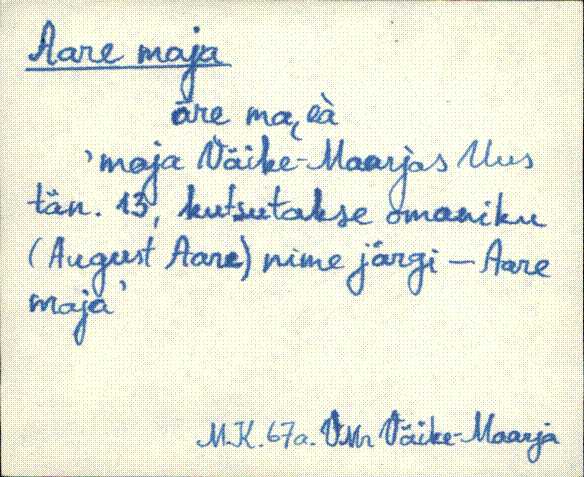 Aare maja
āre ma͔eà
'maja Väike-Maarjas Uus
tän. 13, kutsutakse omaniku
(August Aare) nime järgi – Aare
maja'
M.K. 67a. VMr Väike-Maarja